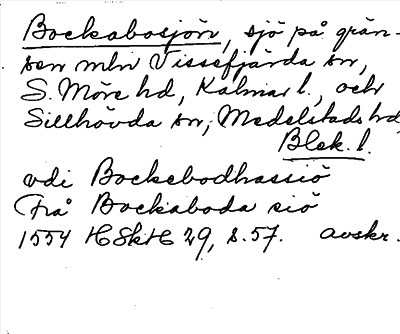 Bockabosjön, sjö på grän-
sen mln Vissefjärda sn,
S. Möre hd, Kalmar l., och
Sillhövda sn, Medelstads hd,
Blek. l.
vdi Bockebodhassiö
frå Bockaboda siö
1554 HSkH 29, s. 57. avskr.